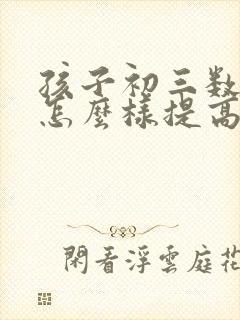 孩子初三数
怎麼樣提高
閑看浮雲庭花